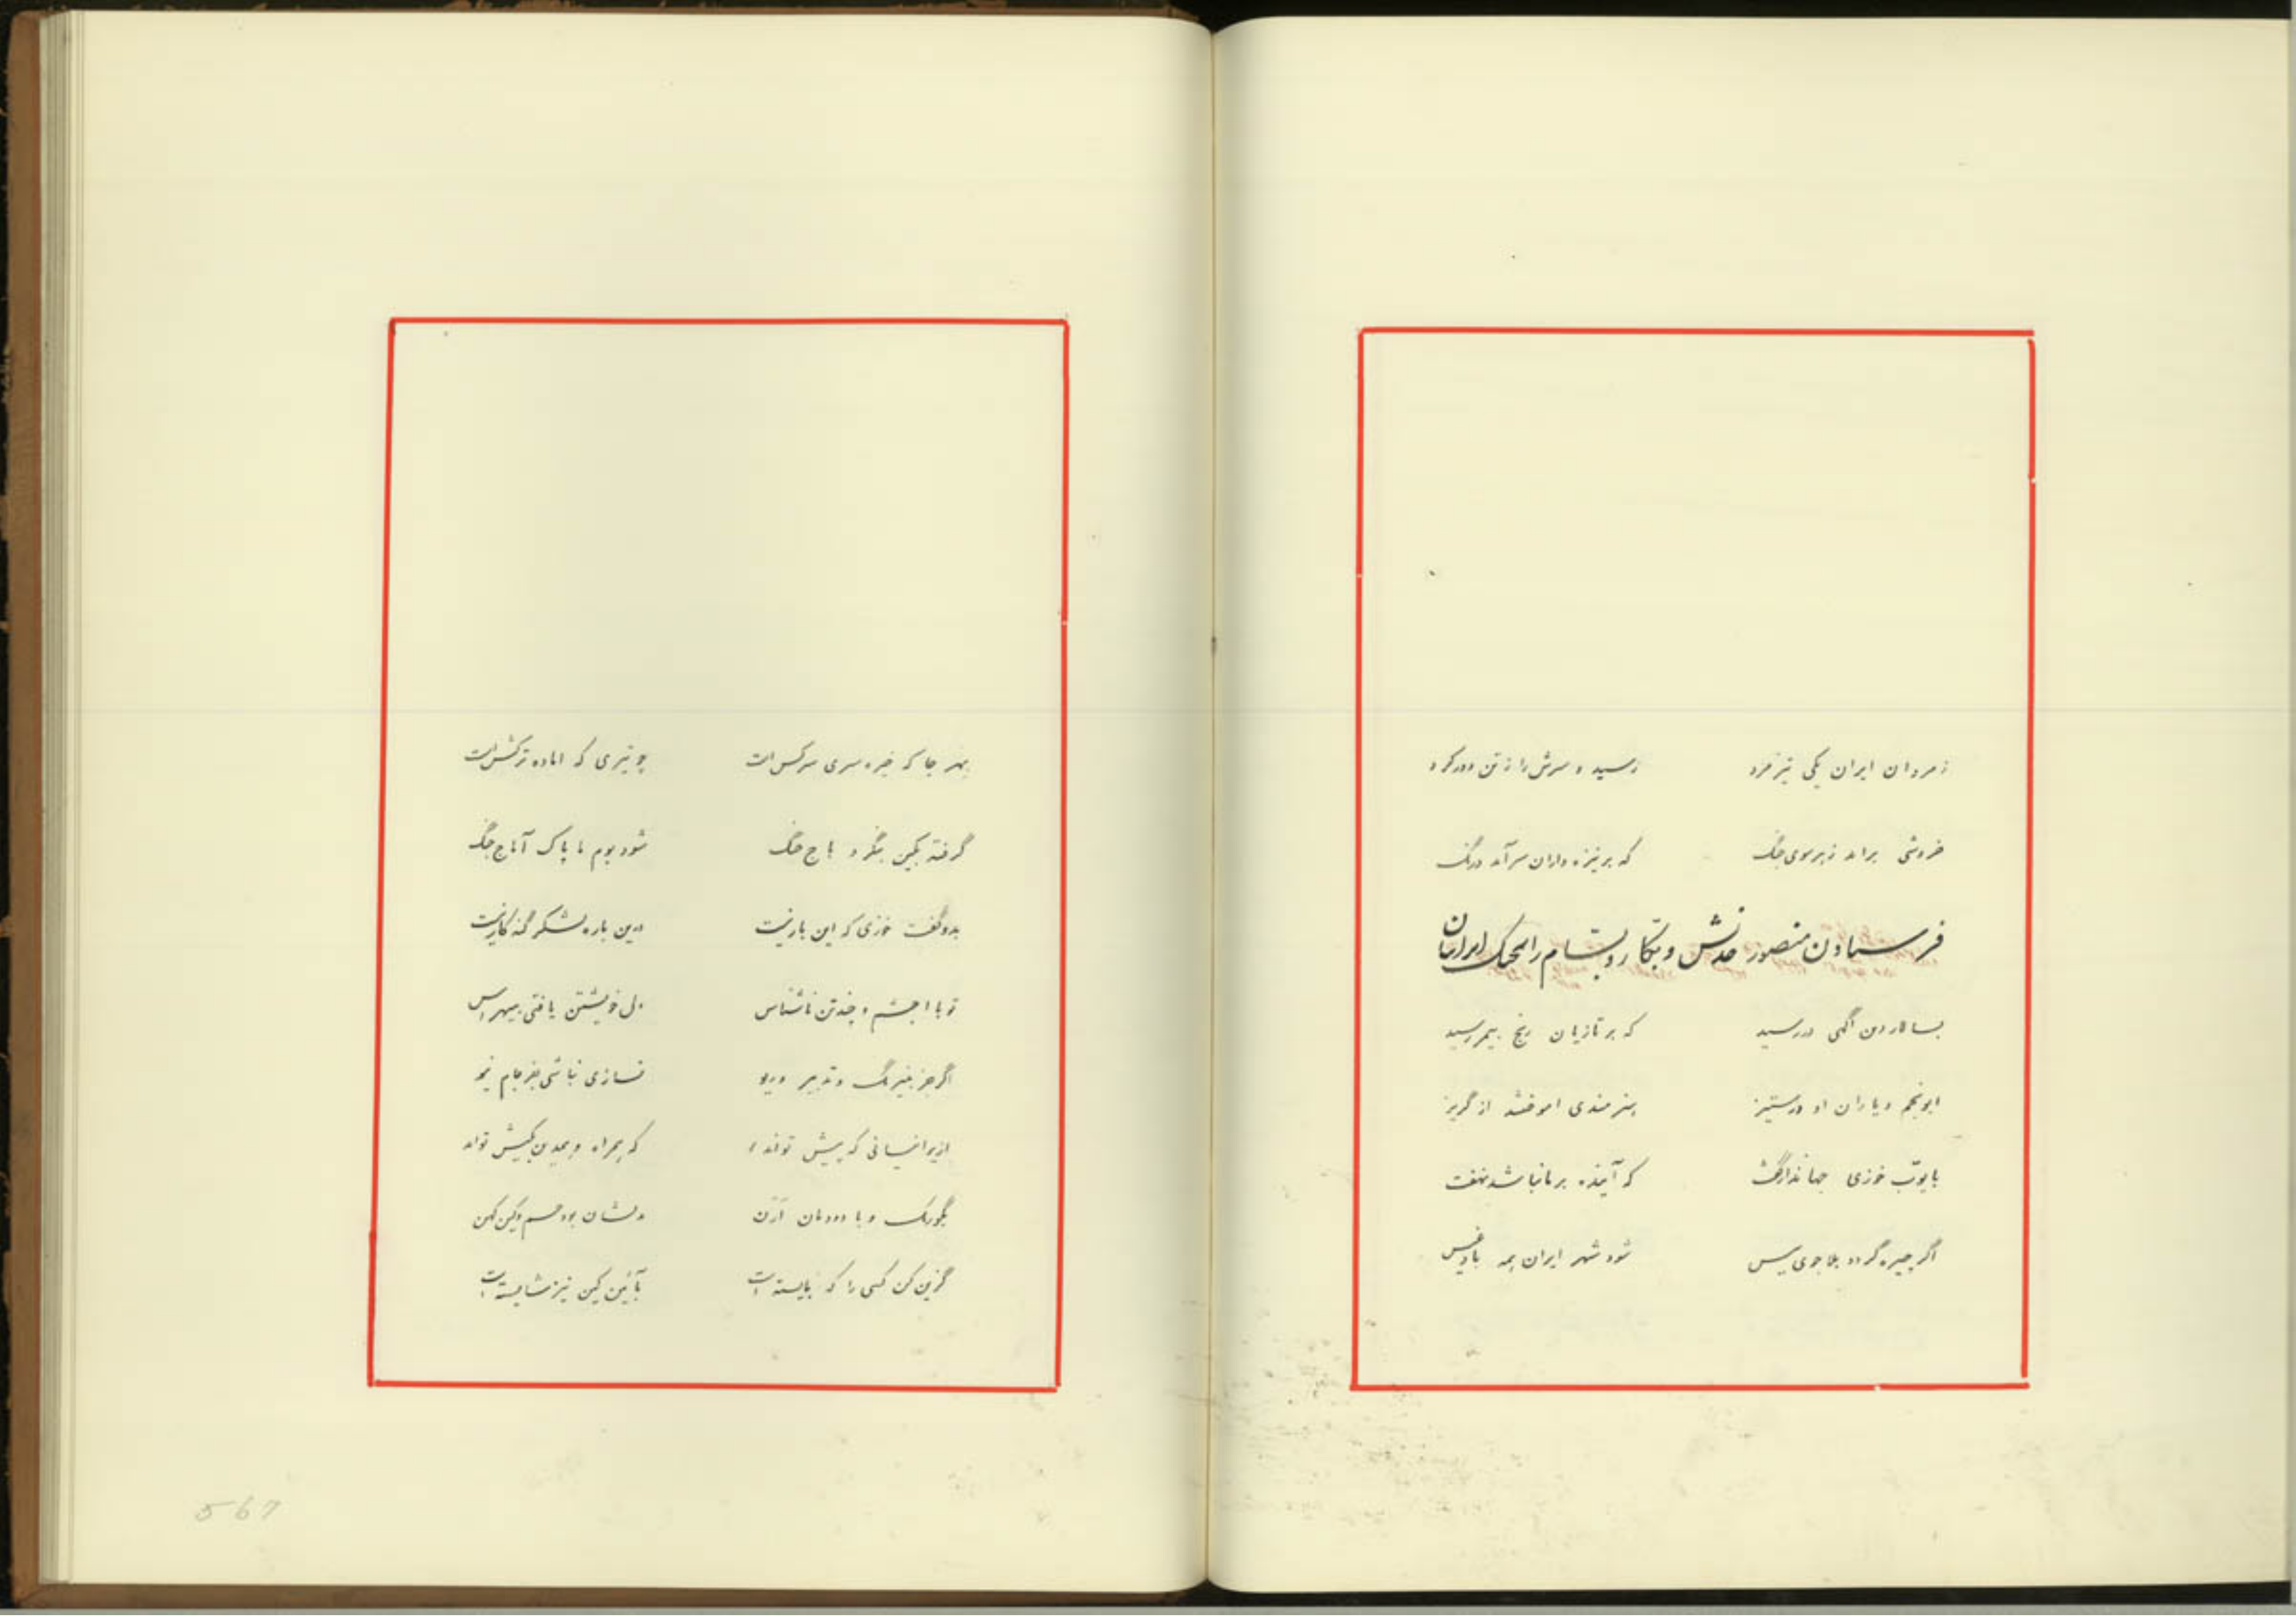 زمردان ایران یکی تیز مرد رسید و سرش را ز تن دور کرد
خروشی براند ز بر سوی جنگ که بر نیزه داران سر آمد درنگ
فرستادن منصور و بکار و بسام را بجنگ ایرانیان
بسالار دون آگهی در رسید که بر تازیان رنج بیمر رسید
ابونجم و یاران او در ستیز هنرمندی اموختند از گریز
بایوّب خوزی جهاندار گفت که آینده بر ما نباشد نهفت
اگر چیره گردد بلاجوی پس شود شهر ایران همه
بهر جا که خیره سری سرکش است چو تیری که اماده ترکش است
گرفته بکین جنگ شود بوم ما پاک آماج جنگ
بدو گفت خوزی که این بار نیست درین باره لشکر کند کار نیست
تو با خشم و چند تن ناشناس دل خویشتن یافتی بیهراس
اگر جز بنیرنگ و تدبیر و ریو نسازی نباشی بفرجام نیو
از ایرانیانی که پیش تواند که همراه و همدین و کیش تواند
دلشان بود خشم و کین کهن
گزین کن کسی را که بایسته است بآئین کین نیز شایسته است
567